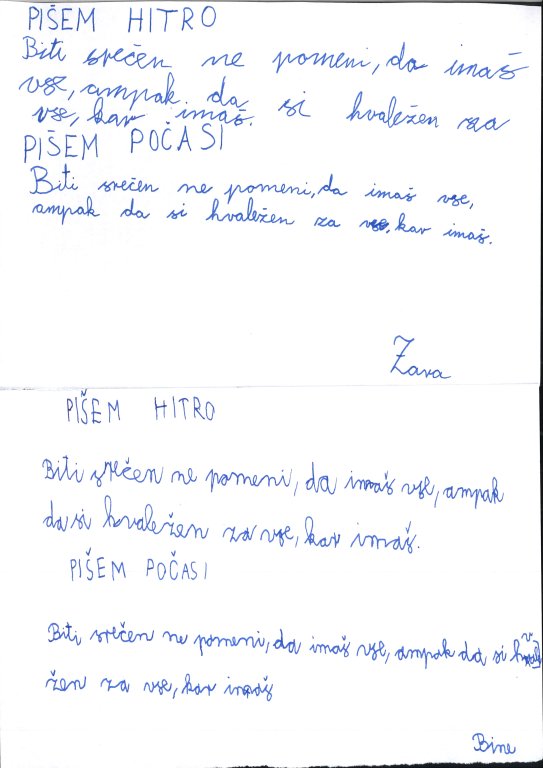 PIŠEM HITRO
Biti srečen ne pomeni, da imaš
vse, ampak da si hvaležen za
vse, kar imaš.
PIŠEM POČASI
Biti srečen ne pomeni, da imaš vse,
ampak da si hvaležen za vse, kar imaš.
Zara
PIŠEM HITRO
Biti srečen ne pomeni, da imaš vse, ampak
da si hvaležen za vse, kar imaš.
PIŠEM POČASI
Biti srečen ne pomeni, da imaš vse, ampak da si hvale
žen za vse, kar imaš
Bine